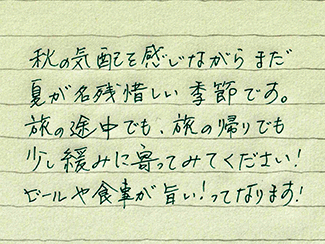 秋の気配を感じながらまだ
夏が名残惜しい季節です。
旅の途中でも、旅の帰りでも
少し緩みに寄ってみてください!
ビールや食事が旨い!ってなります!